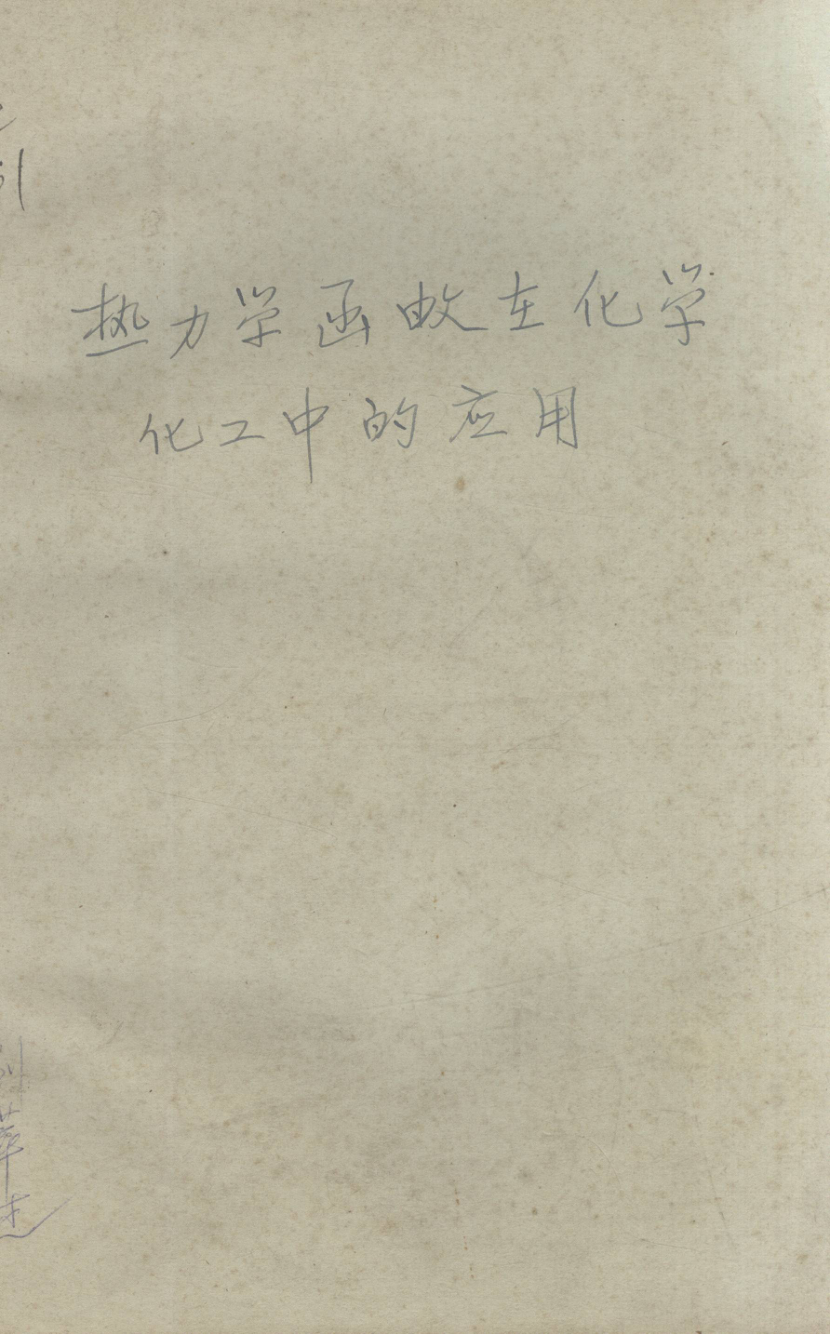 热力学函数在化学
化工中的应用